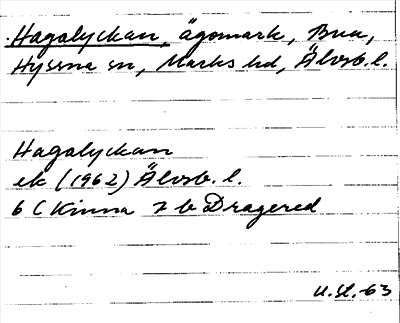 Hagalyckan, ägomark, Bua,
Hyssna sn, Marks hd, Älvsb. l.
Hagalyckan
ek (1962) Älvsb. l.
6 C Kinna 7 b Dragered
-63